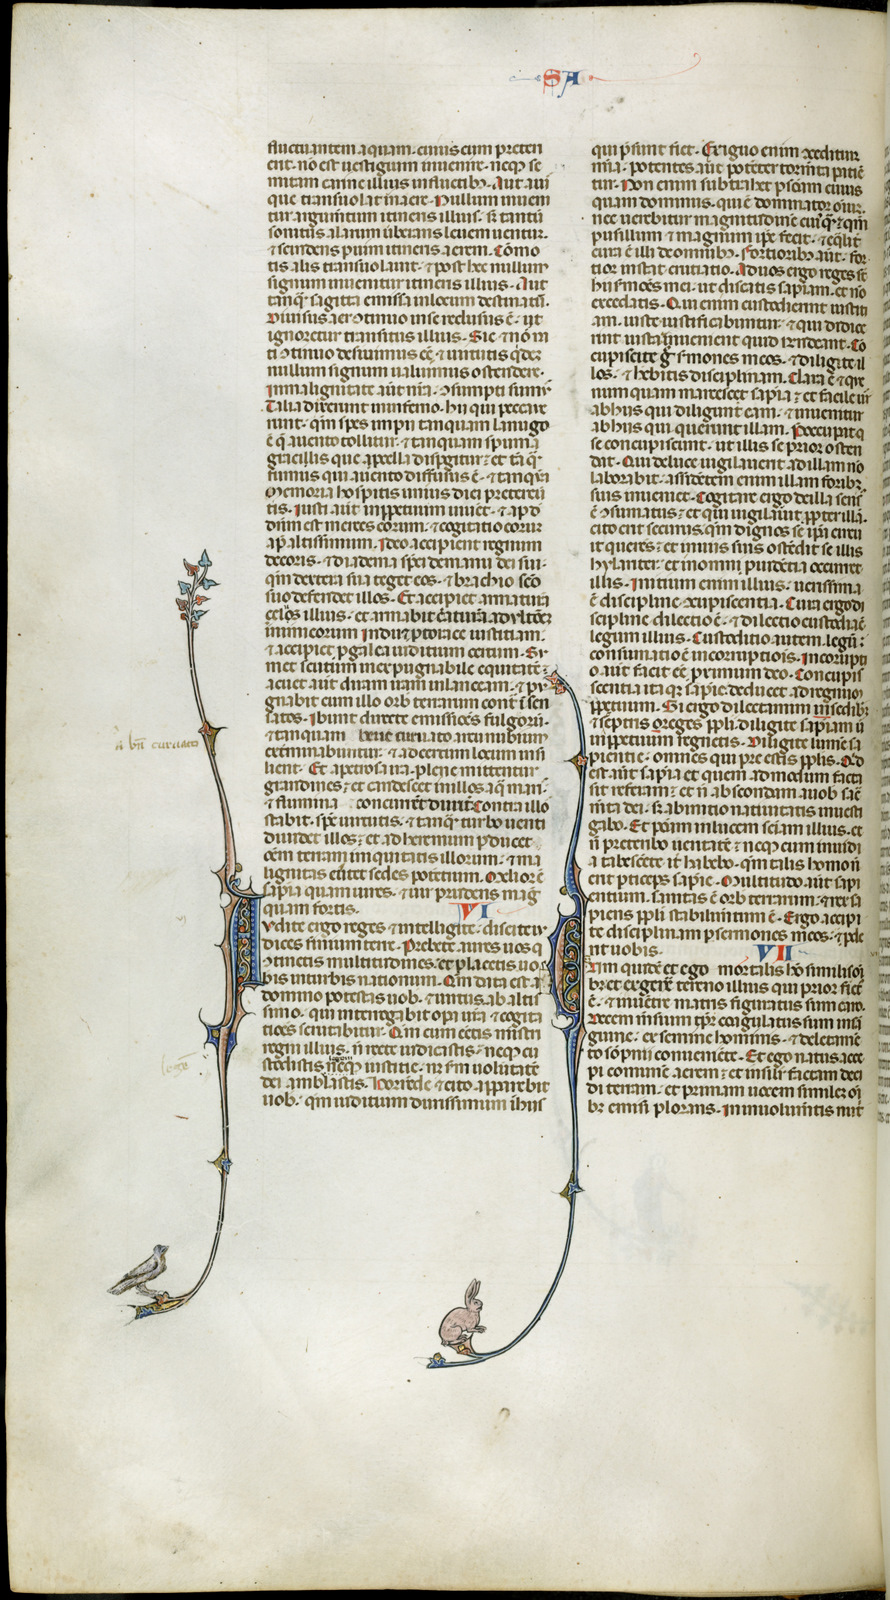 SA
fluctuantem aquam. cuius cum preteri
erit. nō est uestigium inuenire. neqȝ se
mitam carine illius in fluctibȝ. Aut aui
que transuolat in aere. Nullum inueni
tur argumentum itineris illius. sȝ tantū
sonitus alarum uerberans leuem uentum.
⁊ scindens p uim itineris aerem. Cōmo
tis alis transuolauit. ⁊ post hec nullum
signum inuenitur itineris illius. Aut
tanqȝ sagitta emissa in locum destinatū.
Diuisus aer ꝯtinuo in se reclusus ē. ut
ignoretur transitus illius. Sic ⁊ nos na
ti ꝯtinuo desiuimus eē. ⁊ uirtutis qidem
nullum signum ualuimus ostendere.
In malignitate aūt nr̄a. ꝯsumpti sumus
Talia dixerunt in inferno. hii qui peccaue
runt. qm̄ spes impii tanquam lanugo
ē q̄ a uento tollitur. ⁊ tanquam spuma
gracillis que a pcella dispgitur. et tāqȝ
fumus qui a uento diffusus ē. ⁊ tanqȝ
memoria hospitis unius diei pretereū
tis. Iusti aūt in ppetuum uiuēt. ⁊ ap d
dnm est merces eorum. ⁊ cogitatio eorum
ap altissimum. Ideo accipient regnum
decoris. ⁊ diadema spei de manu dei sui.
qm̄ dextera sua teget eos. ⁊ brachio scō
suo defendet illos. Et accipiet armatura
celꝰ illius. et armabit creaturā ad ultōem
inimicorum Induet p torace iustitiam.
⁊ accipiet p galea iuditium certum. Su
met scutum inexpugnabile equitatē
acuet aūt duram iram in lanceam. ⁊ pu
gnabit cum illo orb terrarum contͣ īsen
satos. Ibunt directe emissiōes fulgorū.
⁊ tanquam bene curuato arcu nubium
exterminabuntur. ⁊ ad certum locum insi
lient. Et a petrosa ira. plene mittentur
grandines. et candescet in illos aqͣ mari.
⁊ flumina concurrēt duriter. Contra illos
stabit. spc uirtutis. ⁊ tanqȝ turbo uenti
diuidet illos. et ad heremum pducet
oēm terram iniquitatis illorum. ⁊ ma
lignitas euertet sedes potētium. Melior ē
sapia quam uires. ⁊ uir prudens magͥ
quam fortis. VI
Audite ergo reges ⁊ intelligite. discite iu
dices finium terre. Prebete aures uos q
ꝯtinetis multitudines. et placetis uo
bis in turbis nationum. Qm̄ data est a
domino potestas uob. ⁊ uirtus ab alti
simo. qui interrogabit opa ur̄a. ⁊ cogita
tiōes scrutabitur. Qm̄ cum eētis ministri
regni illius. n̄ recte iudicastis. neqȝ cu
stodistis legem iustitie. neqȝ scdm uolūtatē
dei ambulastis. Horrēde ⁊ cito apparebit
uob. qm̄ iuditium durissimum in hiis
qui p̄sunt fiet. Exiguo enim ꝯceditur
mia. potentes aūt potēter tormēta patiē
tur. Non enim subtrahet psonam cuius
quam dominus. qui ē dominator oīum.
nec uerebitur magnitudinē cuiꝰqȝ. qm̄
pusillum ⁊ magnum ipe fecit. ⁊ equalit
cura ē illi de omnibȝ. Fortioribȝ aūt. for
tior instat cruciatio. Ad uos ergo reges st̄
hii sermōes mei. ut discatis sapiam. et nō
excedatis. Qui enim custodierint iustiti
am. iuste iustificabuntur. ⁊ qui didice
rint iusta. inuenient quid respōdeant. Co
cupiscite g̊ sermones meos. ⁊ diligite il
los. ⁊ hēbitis disciplinam. Clara ē ⁊ que
nunquam marcescet sapia. et facile uī
ab hiis qui diligunt eam. ⁊ inuenitur
ab hiis qui querunt illam. Preoccupat q
se concupiscunt. ut illis se prior osten
dat. Qui de luce uigilauerit ad illam nō
laborabit. assidētem enim illam foribȝ
suis inueniet. Cogitare ergo de illa sensꝰ
ē ꝯsumatus. et qui uigilauit ppter illā.
cito erit securus. qm̄ dignos se ipa circu
it querēs. et in uiis suis ostēdit se illis
hylariter. et in omni. prudētia occurret
illis. Initium enim illius. uerissima
ē discipline ꝯcupiscentia. Cura ergo di
scipline dilectio ē. ⁊ dilectio custodia ē
legum illius. Custoditio autem. legū.
consumatio ē incorruptiōis. Incorrupti
o aūt facit eē proximum deo. Concupis
scentia itaqȝ sapie. deducet ad regnum
ppetuum. Si ergo delectamini in sedibȝ
⁊ sceptris o reges ppli. diligite sapiam ut
in ppetuum regnetis. Diligite lumē sa
pientie. omnes qui preestis pplis. Qid
est aūt sapia et quem ad modum facta
sit referam. et n̄ abscondam a uob sacͣ
mēta dei. sȝ ab initio natiuitatis inuesti
gabo. Et ponam in lucem sciam illius. et
n̄ preteribo ueritatē. neqȝ cum inuidi
a tabescēte it̄ habebo. qm̄ talis homo n̄
erit particeps sapie. Multitudo aūt sapi
entium. sanitas ē orb terrarum. ⁊ rex sa
piens ppli stabilimtum ē. Ergo accipi
te disciplinam p sermones meos. ⁊ pde
rit uobis. VII
Sum quidē et ego mortalis hō similis oī
bȝ et ex gn̄e terreno illius qui prior factꝰ
ē. ⁊ in uētre matris figuratus sum caro.
Decem mēsium tpr̄e coagulatus sum in sā
guine. ex semine hominis. ⁊ delectamē
to sōpnii conueniēte. Et ego natus acce
pi comunē aerem. et in simili factam deci
di terram. et primam uocem similem oī
bȝ emisi plorans. In inuolumētis nut